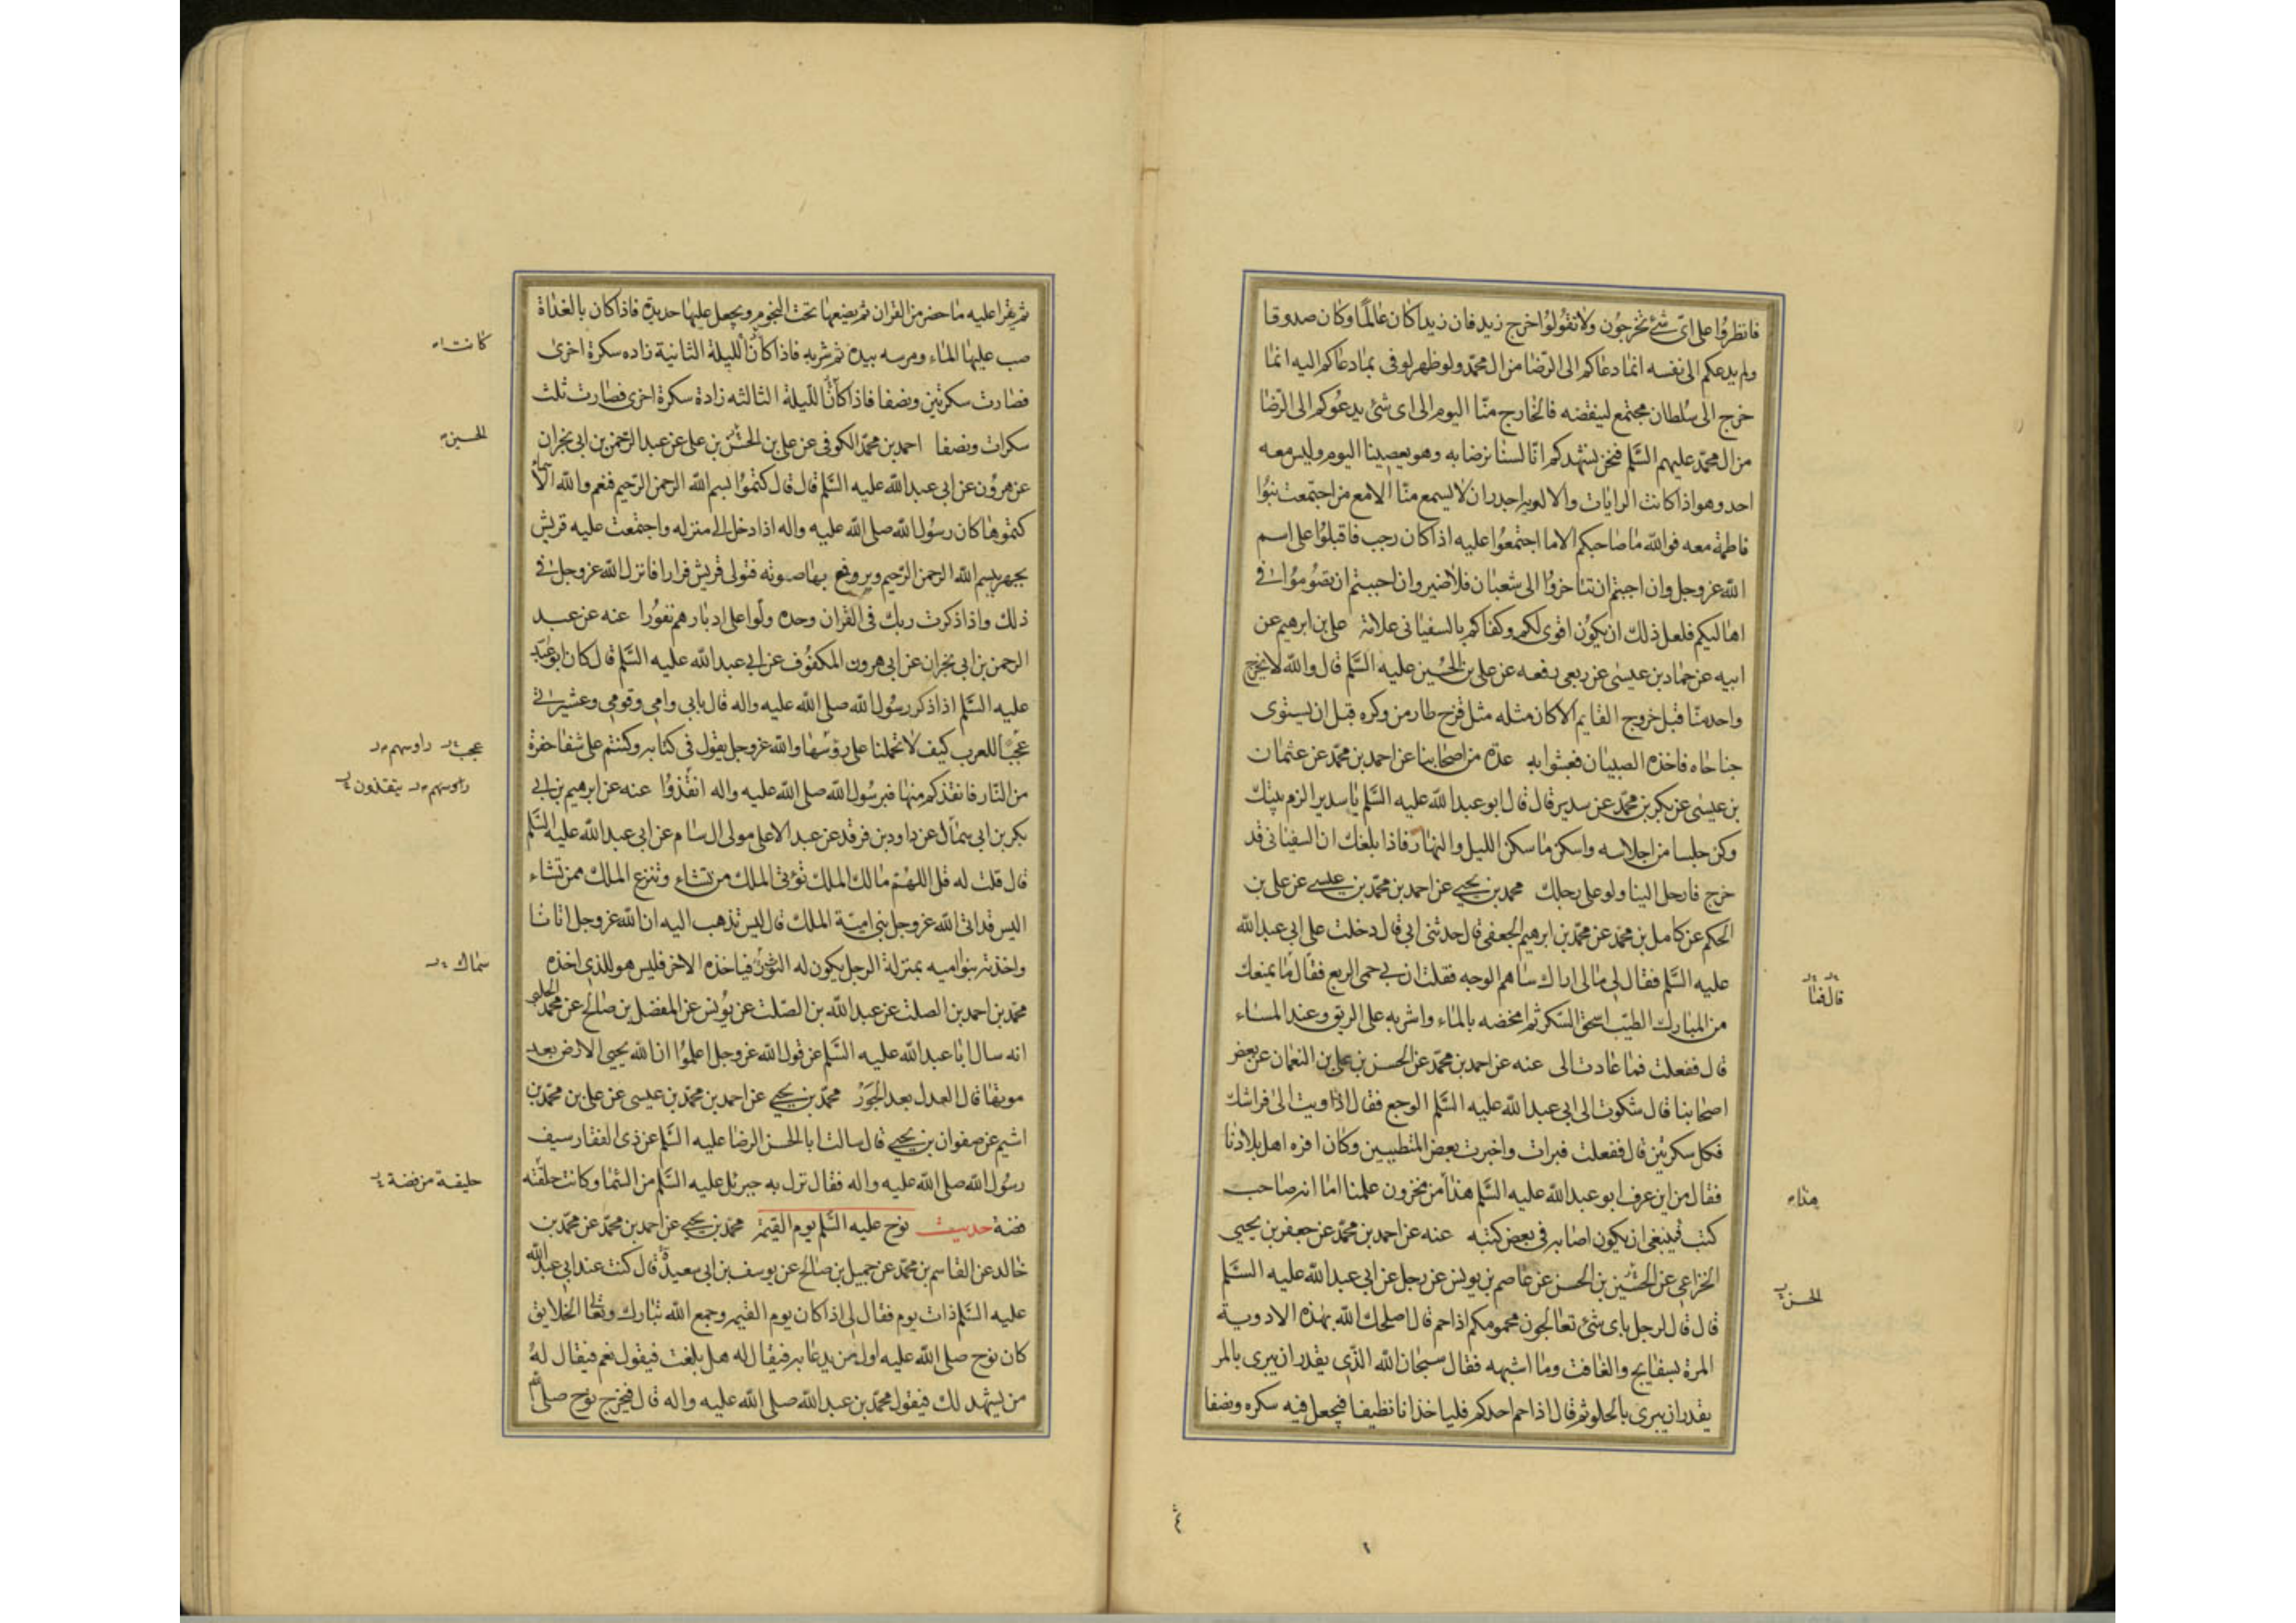 فانظروا على اى شئ تخرجون ولا تقولوا خرج زيد فان زيدا كان عالما وكان صدوقا
ولم يدعكم الى نفسه انما دعاكم الى الرضا من ال محمد ولو ظهر لوفى بما دعاكم اليه انما
خرج الى سلطان مجتمع لينقضه فالخارج منا اليوم الى اى شئ يدعوكم الى الرضا
من ال محمد عليهم السلم فنحن نشهدكم انا لسنا نرضا به وهو يعصينا اليوم وليس معه
احد وهو اذا كانت الرايات والالويه اجدر ان لا يسمع منا الا مع من اجتمعت بنوا
فاطمة معه فوالله ما صاحبكم الا ما اجتمعوا عليه اذا كان رجب فاقبلوا على اسم
الله عز وجل وان اجبتم ان تتاخروا الى شعبان فلا ضير وان احببتم ان تصوموا فى
اهاليكم فلعل ذلك ان يكون اقوى لكم وكفاكم بالسفيانى علامة على بن ابرهيم عن
ابيه عن حماد بن عيسى عن ربعى رفعه عن على بن الحسين عليه السلم قال والله لا يخرج
واحد منا قبل خروج القايم الا كان مثله مثل فرخ طار من وكره قبل ان يستوى
جناحاه فاخذه الصبيان فعبثوا به عدة من اصحابنا عن احمد بن محمد عن عثمان
بن عيسى عن بكر بن محمد عن سدير قال قال ابو عبد الله عليه السلم يا سدير الزم بيتك
وكن حلسا من احلاسه واسكن ما سكن الليل والنهار فاذا بلغك ان السفيانى قد
خرج فارحل الينا ولو على رجلك محمد بن يحيى عن احمد بن محمد بن عيسى عن على بن
الحكم عن كامل بن محمد عن محمد بن ابرهيم الجعفى قال حدثنى ابى قال دخلت على ابى عبد الله
عليه السلم فقال لى مالى اراك ساهم الوجه فقلت ان بى حمى الربع فقال ما يمنعك
قال فما
من المبارك الطيب اسحق السكر ثم امخضه بالماء واشربه على الريق وعند المساء
قال ففعلت فما عادت الى عنه عن احمد بن محمد عن الحسن بن على بن النعمان عن بعض
اصحابنا قال شكوت الى ابى عبد الله عليه السلم الوجع فقال اذا اويت الى فراشك
فكل سكرتين قال ففعلت فبرات واخبرت بعض المتطببين وكان افره اهل بلادنا
فقال من اين عرف ابو عبد الله عليه السلم هذا من مخزون علمنا اما انه صاحب
هذا
كتب فينبغى ان يكون اصابه فى بعض كتبه عنه عن احمد بن محمد عن جعفر بن يحيى
الخزاعى عن الحسين بن الحسن عن عاصم بن يونس عن رجل عن ابى عبد الله عليه السلم
الحسن
قال قال لرجل باى شئ تعالجون محمومكم اذا حم قال اصلحك الله بهذه الادوية
المرة بسفايج والغافت وما اشبهه فقال سبحان الله الذى يقدر ان يبرى بالمر
يقدر ان يبرى بالحلو ثم قال اذا حم احدكم فلياخذ انا نظيفا فيجعل فيه سكره ونصفا
ثم يقرا عليه ما حضر من القران ثم يضعها تحت النجوم ويجعل عليها حديدة فاذا كان بالغداة
صب عليها الماء ومرسه بيده ثم شربه فاذا كان الليلة الثانية زاده سكرة اخرى
كانت
فصارت سكرتين ونصفا فاذا كان الليلة الثالثه زادة سكرة اخرى فصارت ثلث
سكرات ونصفا احمد بن محمد الكوفى عن على بن الحسن بن على عن عبد الرحمن بن ابى نجران
الحسين
عن هرون عن ابى عبد الله عليه السلم قال قال كتموا بسم الله الرحمن الرحيم فنعم والله الاسماء
كتموها كان رسول الله صلى الله عليه واله اذا دخل الى منزله واجتمعت عليه قريش
يجهر ببسم الله الرحمن الرحيم ويرفع بها صوته فتولى قريش فرارا فانزل الله عز وجل فى
ذلك واذا ذكرت ربك فى القران وحده ولوا على ادبارهم نفورا عنه عن عبد
الرحمن بن ابى نجران عن ابى هرون المكفوف عن ابى عبد الله عليه السلم قال كان ابو عبد الله
عليه السلم اذا ذكر رسول الله صلى الله عليه واله قال بابى وامى وقومى وعشيرتى
عجبا للعرب كيف لا تحملنا على رؤسها والله عز وجل يقول فى كتابه وكنتم على شفا حفرة
عجب راوسهم
من النار فانقذكم منها فبرسول الله صلى الله عليه واله انقذوا عنه عن ابرهيم بن ابى
راوسهم ينقذون
بكر بن ابى سمال عن داود بن فرقد عن عبد الاعلى مولى ال سام عن ابى عبد الله عليه السلم
قال قلت له قل اللهم مالك الملك تؤتى الملك من تشاء وتنزع الملك ممن تشاء
اليس قد اتى الله عز وجل بنى امية الملك قال ليس تذهب اليه ان الله عز وجل اتانا
واخذته بنو اميه بمنزلة الرجل يكون له الثوب فياخذه الاخر فليس هو للذى اخذه
سماك
محمد بن احمد بن الصلت عن عبد الله بن الصلت عن يونس عن المفضل بن صالح عن محمد الحلبى
انه سال ابا عبد الله عليه السلم عن قول الله عز وجل اعلموا ان الله يحيى الارض بعد
موتها قال العدل بعد الجور محمد بن يحيى عن احمد بن محمد بن عيسى عن على بن محمد بن
اشيم عن صفوان بن يحيى قال سالت ابا الحسن الرضا عليه السلم عن ذى الفقار سيف
رسول الله صلى الله عليه واله فقال نزل به جبرئل عليه السلم من السما وكانت حلقته
حليقة من فضة
فضة حديث نوح عليه السلم يوم القيمة محمد بن يحيى عن احمد بن محمد عن محمد بن
خالد عن القاسم بن محمد عن جميل بن صالح عن يوسف بن ابى سعيدة قال كنت عند ابى عبد الله
عليه السلم ذات يوم فقال لى اذا كان يوم القيمه وجمع الله تبارك وتعالى الخلايق
كان نوح صلى الله عليه اول من يدعا به فيقال له هل بلغت فيقول نعم فيقال له
من يشهد لك فيقول محمد بن عبد الله صلى الله عليه واله قال فيخرج نوح صلى الله